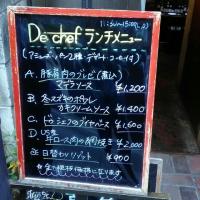 11:30〜15:00(L.O)
De chef ランチメニュー
(アミューズ・パン2種・デザート・コーヒー付)
A. 豚肩肉のブレゼ(煮込)
マデラソース
¥1,200
B. 冬スズキのポワレ
カキクリームソース ¥1,400
C. ドゥシェフのブイヤベース ¥1,600
D. US産
牛ロース肉の網焼き ¥2,000
E. 日替わりリゾット ¥900
※全て税抜価格になります